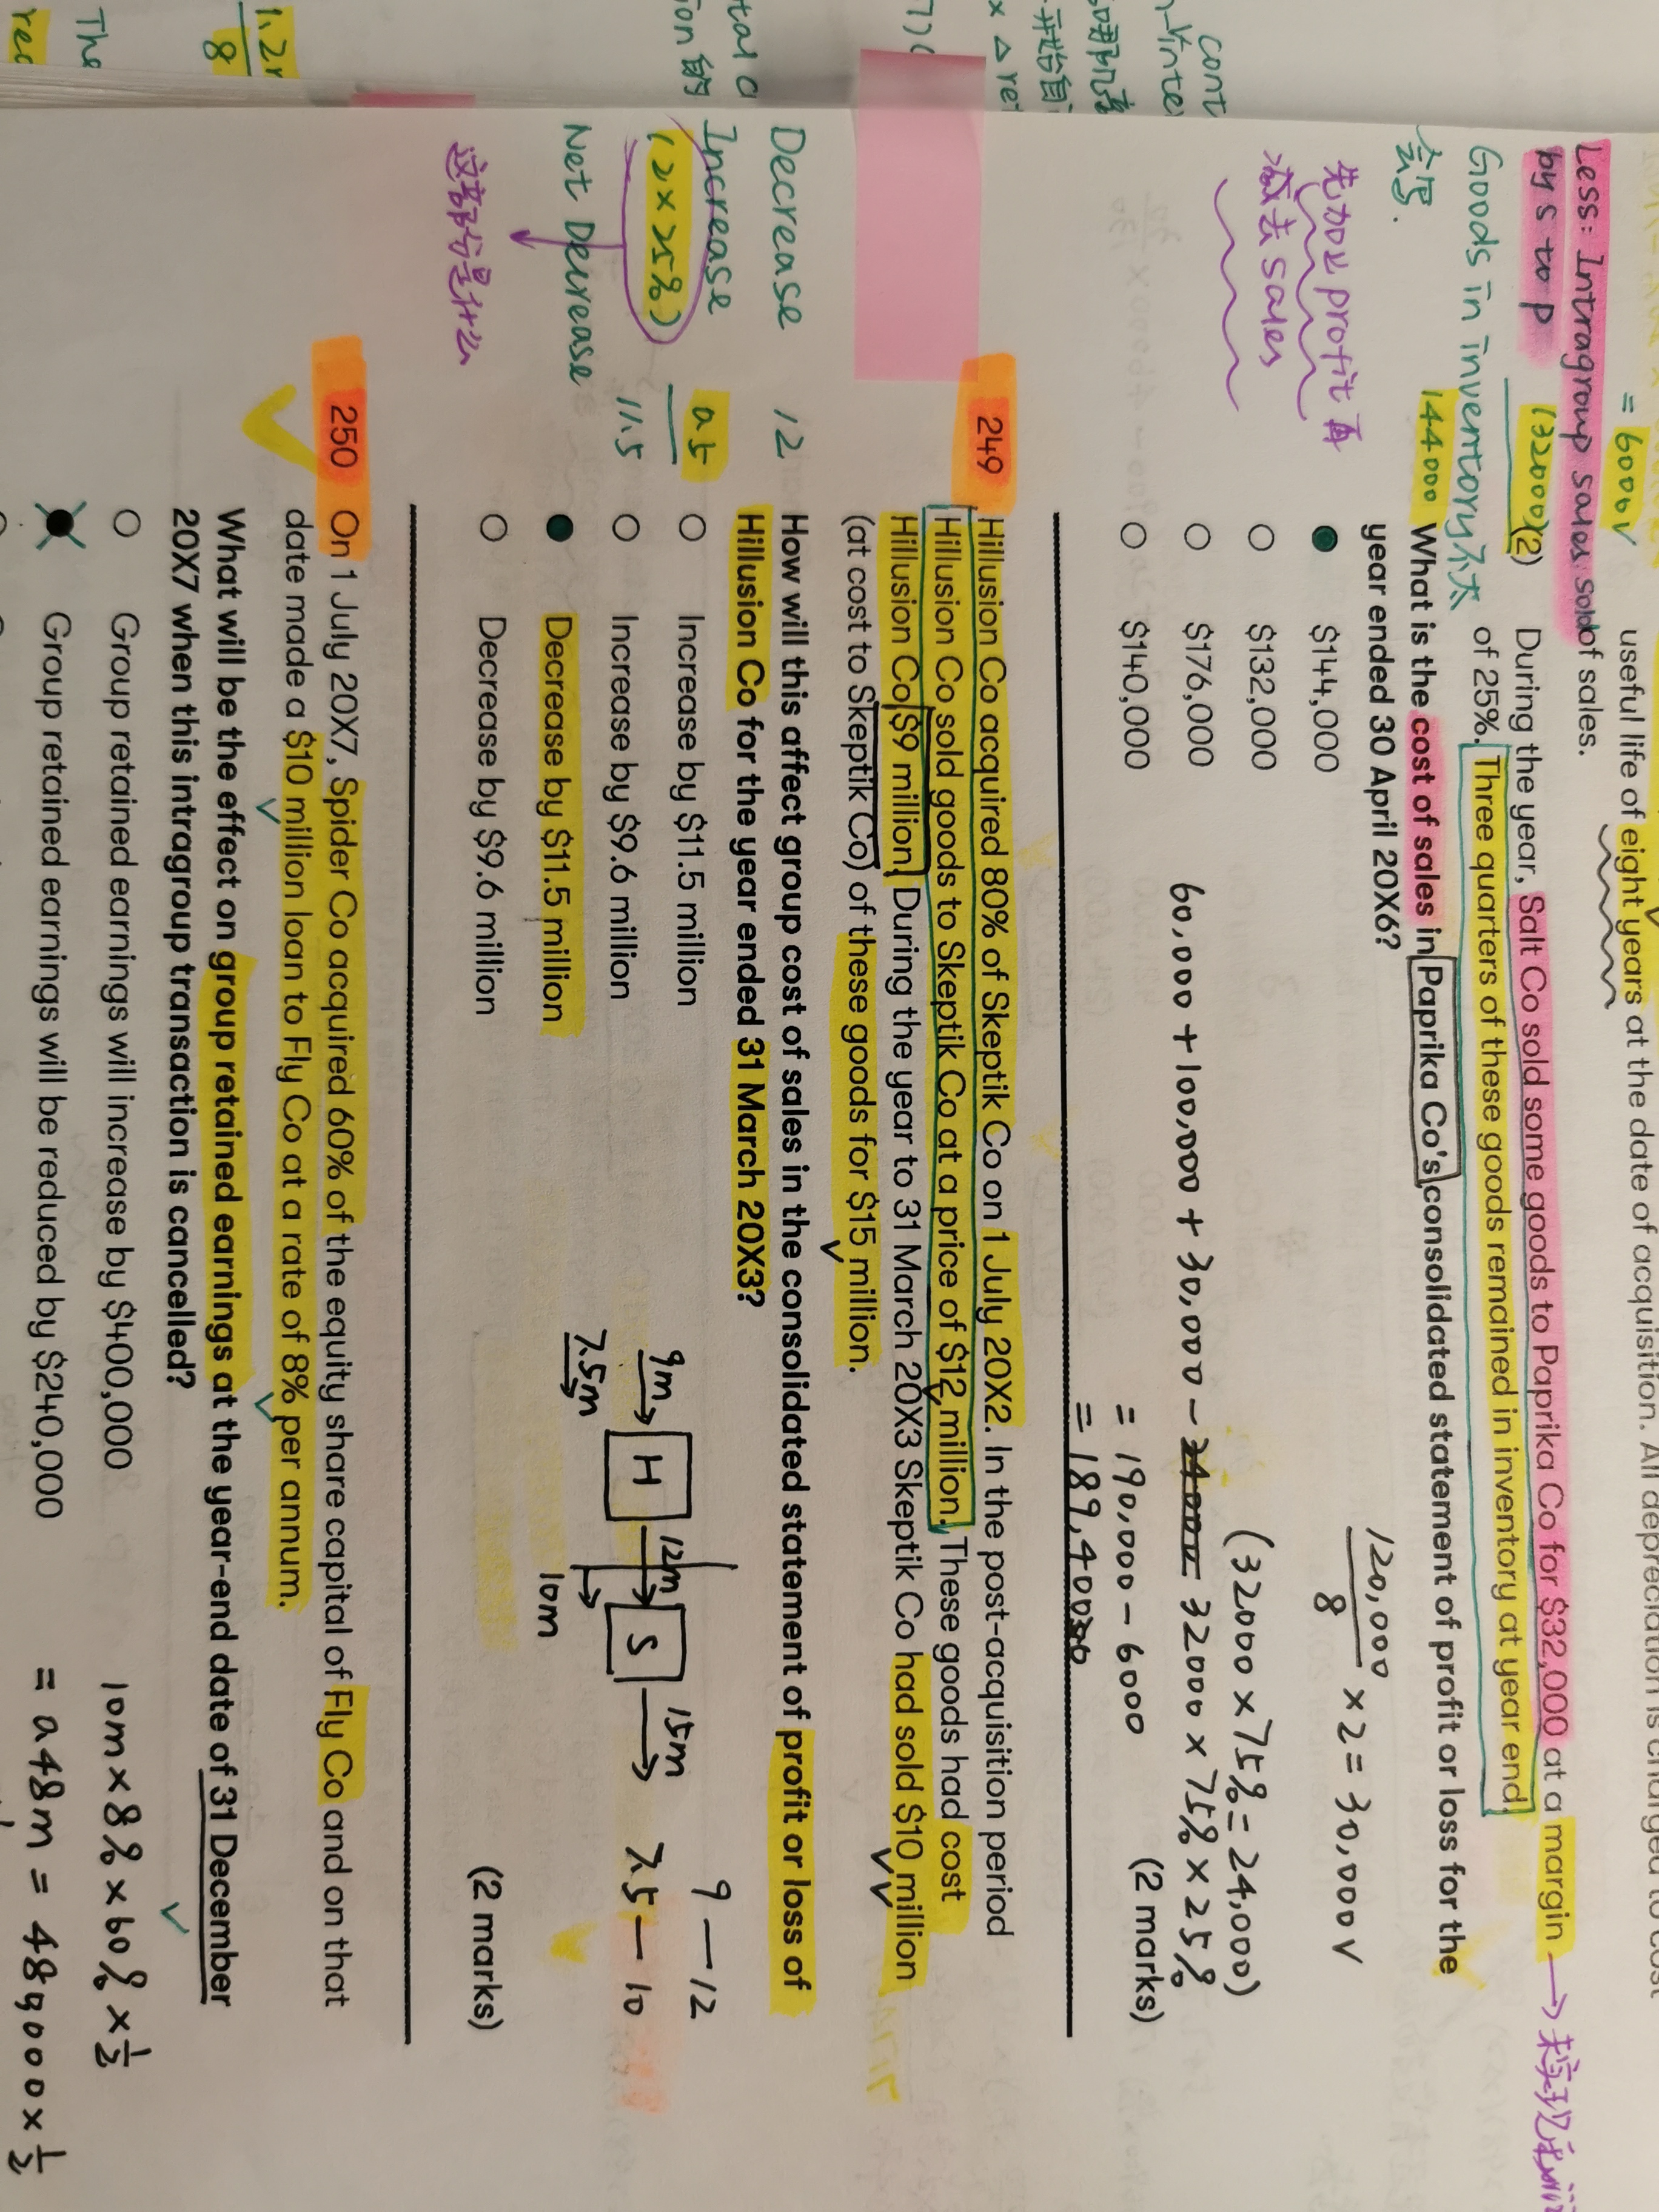 = 6000 √
Less: Intragroup sales: sold
by S to P (32000)(2)
Goods in inventory 不太
会写. 144000
先加 profit 再
减去 sales
useful life of eight years at the date of acquisition. All depreciation is charged to cost
of sales.
During the year, Salt Co sold some goods to Paprika Co for $32,000 at a margin
of 25%. Three quarters of these goods remained in inventory at year end.
What is the cost of sales in Paprika Co's consolidated statement of profit or loss for the
year ended 30 April 20X6?
$144,000
$132,000
$176,000
$140,000
120,000
8
×2 = 30,000 √
(32000 × 75% = 24,000)
60,000 + 100,000 + 30,000 - 24000 32000 × 75% × 25%
= 190,000 - 6000
= 189,400
(2 marks)
249 Hillusion Co acquired 80% of Skeptik Co on 1 July 20X2. In the post-acquisition period
Hillusion Co sold goods to Skeptik Co at a price of $12 million. These goods had cost
Hillusion Co $9 million. During the year to 31 March 20X3 Skeptik Co had sold $10 million
(at cost to Skeptik Co) of these goods for $15 million.
How will this affect group cost of sales in the consolidated statement of profit or loss of
Hillusion Co for the year ended 31 March 20X3?
Increase by $11.5 million
Increase by $9.6 million
Decrease by $11.5 million
Decrease by $9.6 million
(2 marks)
Decrease 12
Increase 0.5
(2 × 25%)
Net Decrease 11.5
这部分是什么
9m H 12m S 15m
7.5m 10m
9 — 12
7.5 — 10
250 On 1 July 20X7, Spider Co acquired 60% of the equity share capital of Fly Co and on that
date made a $10 million loan to Fly Co at a rate of 8% per annum.
What will be the effect on group retained earnings at the year-end date of 31 December
20X7 when this intragroup transaction is cancelled?
Group retained earnings will increase by $400,000
Group retained earnings will be reduced by $240,000
10m × 8% × 60% × 1/2